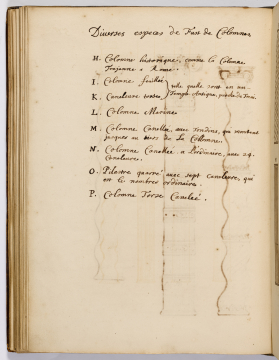 Diverses especes de Fust de Colomnes
H. Colomne historique, comme la Colonne
Trajanne a Rome.
I. Colonne feuillée
telle quelle sont en un
K. Caneleure torses,
Temple Antique, proche de
L. Colonne
M. Colomne Canellée, avec Tondins, qui montent
jusques au tiers de la Colomne.
N. Colomne Canelleé a l'ordinaire, avec 24.
Caneleures.
O. Pilastre quarré avec sept canelures, qui
est le nombre ordinaire.
P. Colomne Torse Caneleé.